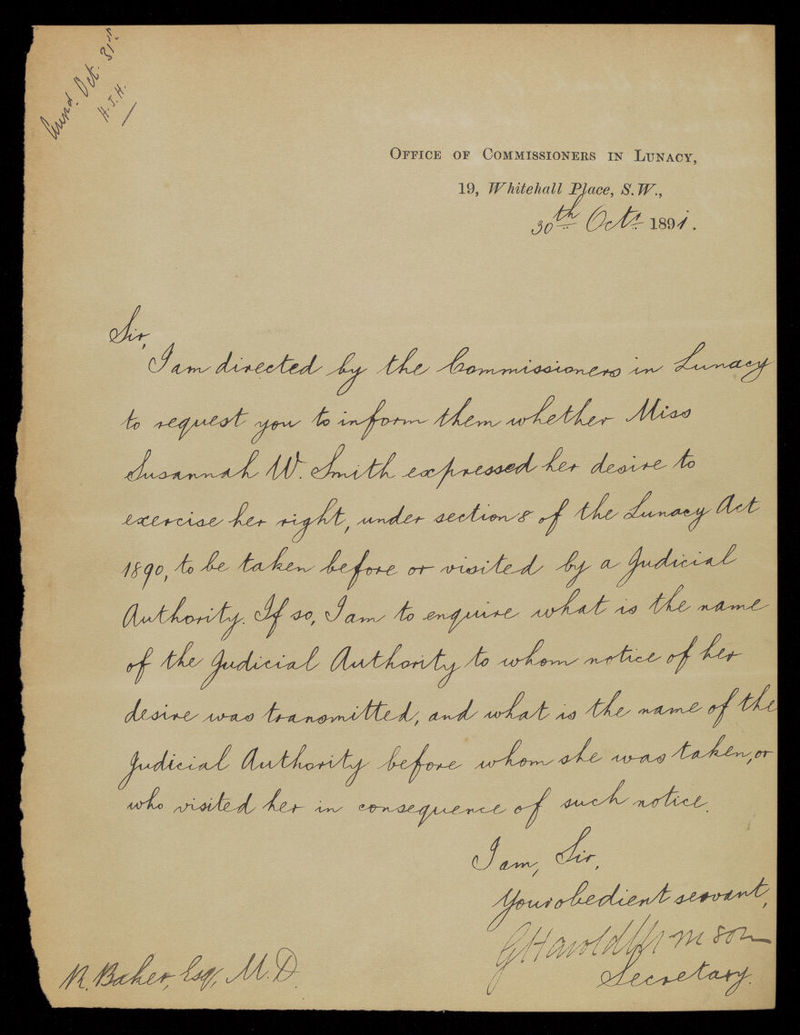 Oct. 31st
H.J.H.
OFFICE OF COMMISSIONERS IN LUNACY,
19, Whitehall Place, S.W.,
30th Octr. 1891.
Sir,
I am directed by the Commissioners in Lunacy
to request you to inform them whether Miss
Susannah W. Smith expressed her desire to
exercise her right, under section 8 of the Lunacy Act
1890, to be taken before or visited by a Judicial
Authority. If so, I am to enquire what is the name
of the Judicial Authority to whom notice of her
desire was transmitted, and what is the name of the
Judicial Authority before whom she was taken, or
who visited her in consequence of such notice.
I am, Sir,
Your obedient servant,
G Harold Urmson
Secretary.
R. Baker, Esq, M.D.